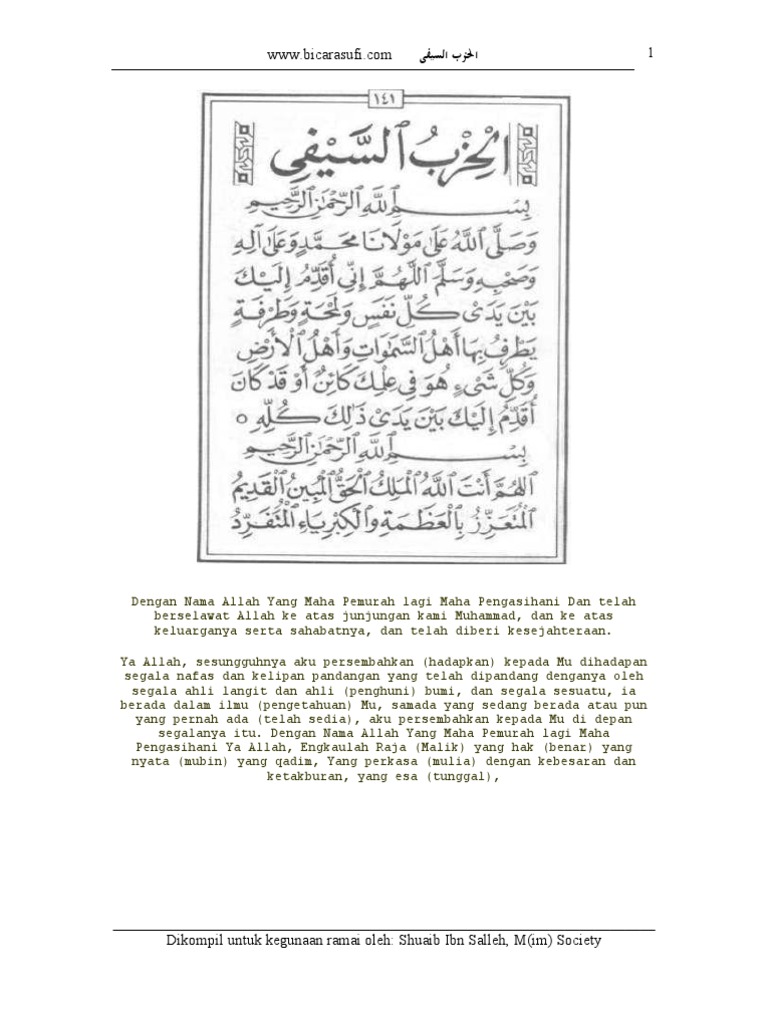 www.bicarasufi.com الحزب السيفى 1
١٤١
اَلْحِزْبُ ٱلسَّيْفِي
بِسْمِ ٱللَّهِ ٱلرَّحْمَٰنِ ٱلرَّحِيمِ
وَصَلَّى ٱللَّهُ عَلَى مَوْلَانَا مُحَمَّدٍ وَعَلَى آلِهِ
وَصَحْبِهِ وَسَلَّمَ اَللَّهُمَّ إِنِّي أُقَدِّمُ إِلَيْكَ
بَيْنَ يَدَىْ كُلِّ نَفَسٍ وَلَمْحَةٍ وَطَرْفَةٍ
يَطْرِفُ بِهَا أَهْلُ ٱلسَّمَوَاتِ وَأَهْلُ ٱلْأَرْضِ
وَكُلِّ شَىْءٍ هُوَ فِي عِلْمِكَ كَائِنٌ أَوْ قَدْ كَانَ
أُقَدِّمُ إِلَيْكَ بَيْنَ يَدَىْ ذَٰلِكَ كُلِّهِ ○
بِسْمِ ٱللَّهِ ٱلرَّحْمَٰنِ ٱلرَّحِيمِ
اَللَّهُمَّ أَنْتَ ٱللَّهُ ٱلْمَلِكُ ٱلْحَقُّ ٱلْمُبِينُ ٱلْقَدِيمُ
ٱلْمُتَعَزِّزُ بِٱلْعَظَمَةِ وَٱلْكِبْرِيَاءِ ٱلْمُتَفَرِّدُ
Dengan Nama Allah Yang Maha Pemurah lagi Maha Pengasihani Dan telah
berselawat Allah ke atas junjungan kami Muhammad, dan ke atas
keluarganya serta sahabatnya, dan telah diberi kesejahteraan.
Ya Allah, sesungguhnya aku persembahkan (hadapkan) kepada Mu dihadapan
segala nafas dan kelipan pandangan yang telah dipandang denganya oleh
segala ahli langit dan ahli (penghuni) bumi, dan segala sesuatu, ia
berada dalam ilmu (pengetahuan) Mu, samada yang sedang berada atau pun
yang pernah ada (telah sedia), aku persembahkan kepada Mu di depan
segalanya itu. Dengan Nama Allah Yang Maha Pemurah lagi Maha
Pengasihani Ya Allah, Engkaulah Raja (Malik) yang hak (benar) yang
nyata (mubin) yang qadim, Yang perkasa (mulia) dengan kebesaran dan
ketakburan, yang esa (tunggal),
Dikompil untuk kegunaan ramai oleh: Shuaib Ibn Salleh, M(im) Society